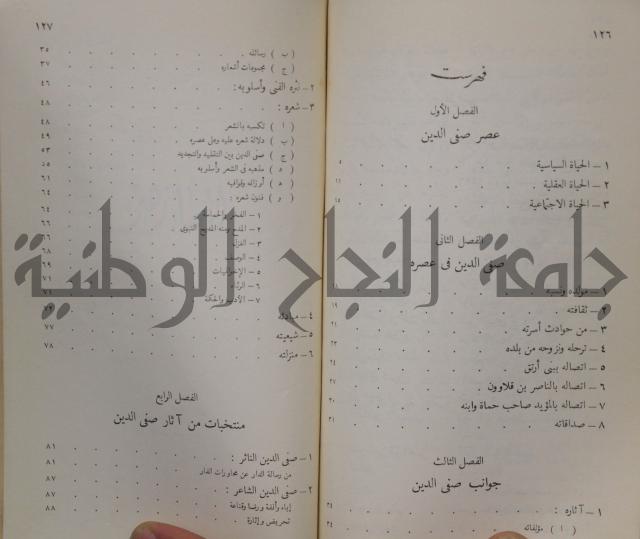 ١٢٦
فهرست
الفصل الأول
عصر صفى الدين
١ – الحياة السياسية . . . . . ٥
٢ – الحياة العقلية . . . . . ١١
٣ – الحياة الاجتماعية . . . . . ١٥
الفصل الثانى
صفى الدين فى عصره
١ – مولده ونسبه
٢ – ثقافته . . . . . ١٩
٣ – من حوادث أسرته . . . . . ٢١
٤ – ترحله ونزوحه من بلده . . . . . ٢٣
٥ – اتصاله ببنى أرتق . . . . . ٢٤
٦ – اتصاله بالناصر بن قلاوون . . . . . ٢٧
٧ – اتصاله بالمؤيد صاحب حماة وابنه . . . . . ٢٩
٨ – صداقاته . . . . . ٣١
الفصل الثالث
جوانب صفى الدين
١ – آثاره : . . . . . ٣٤
( ا ) مؤلفاته . . . . . ٣٤
١٢٧
( ب ) رسائله . . . . . ٣٥
( ج ) مجموعات أشعاره . . . . . ٣٧
٢ – نثره الفنى وأسلوبه : . . . . . ٤٦
٣ – شعره : . . . . . ٤٨
( ا ) تكسبه بالشعر . . . . . ٤٨
( ب ) دلالة شعره عليه وعلى عصره . . . . . ٤٩
( ج ) صفى الدين بين التقليد والتجديد . . . . . ٥٣
( د ) مذهبه فى الشعر وأسلوبه . . . . . ٥٥
( ه ) أوزانه وقوافيه . . . . . ٦١
( و ) فنون شعره : . . . . . ٦٤
١ – الفخر والحماسة . . . . . ٦٤
٢ – المدح ومنه المديح النبوى . . . . . ٦٦
٣ – الغزل . . . . . ٦٦
٤ – الوصف . . . . . ٦٨
٥ – الإخوانيات . . . . . ٦٩
٦ – الرثاء . . . . . ٧١
٧ – الأدب والحكمة . . . . . ٧١
٤ – مبادئه . . . . . ٧٢
٥ – شيعيته . . . . . ٧٧
٦ – منزلته . . . . . ٧٨
الفصل الرابع
منتخبات من آثار صفى الدين
١ – صفى الدين الناثر : . . . . . ٨١
من رسالة الدار عن محاورات الفار . . . . . ٨١
٢ – صفى الدين الشاعر : . . . . . ٨٧
إباء وأنفة ورضا وقناعة . . . . . ٨٧
تحريض وإثارة . . . . . ٨٨
جامعة النجاح الوطنية